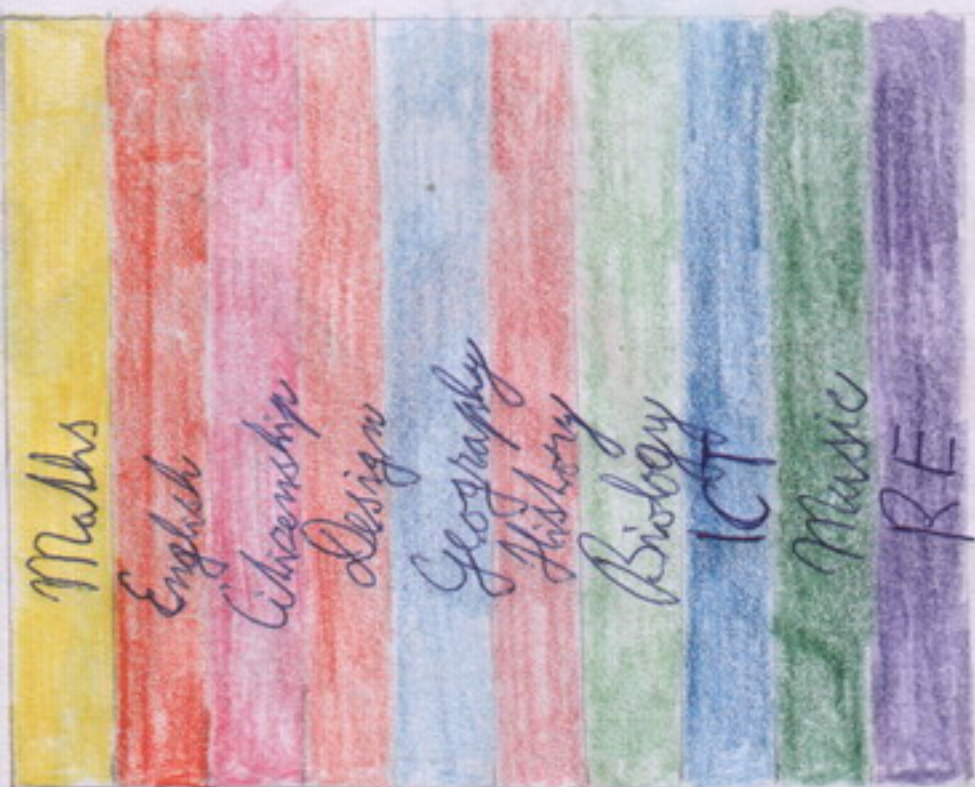 Maths
English
Citizenship
Design
Geography
History
Biology
ICT
Music
RE